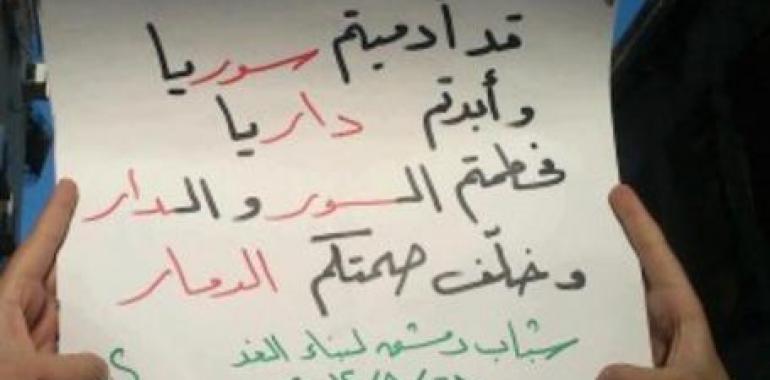 قد أدميتم سوريا
وأبدتم داريا
فحطمتم السور والدار
وخلّف صمتكم الدمار
شباب دمشق لبناء الغد